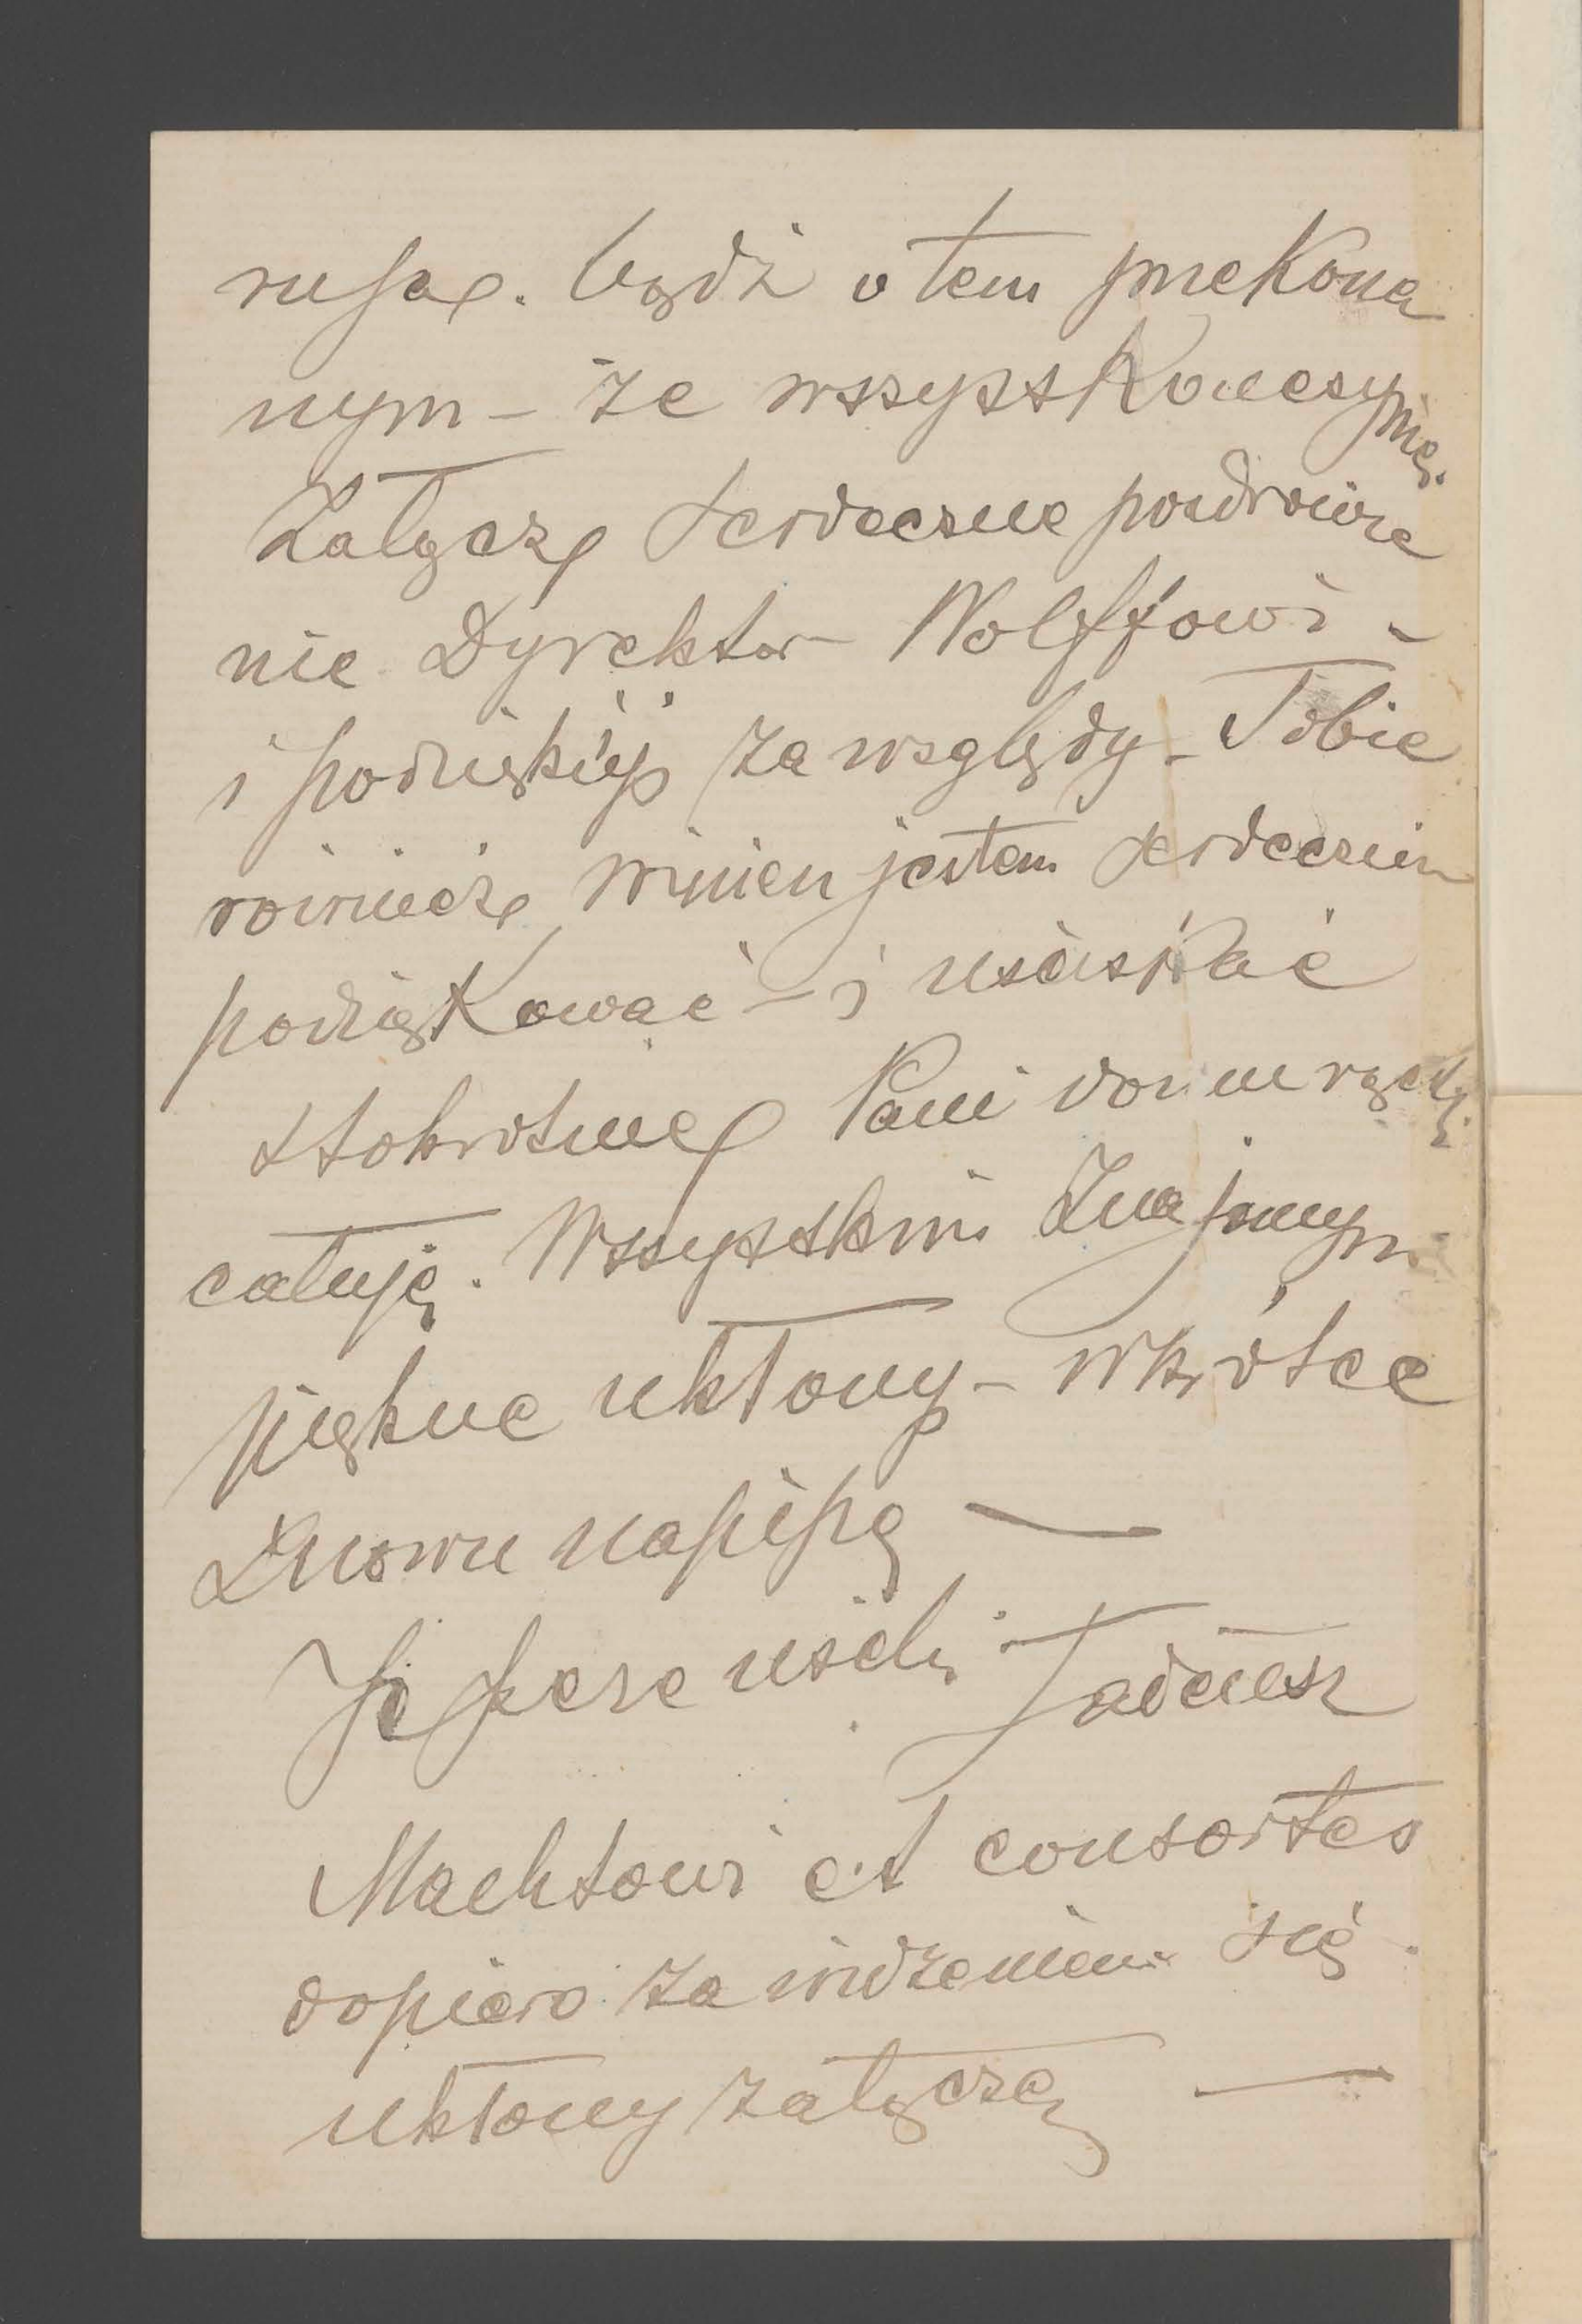 rusza. bądź o tem przekona
nym – że wszystko uczynię.
Załączę serdeczne pozdrowie
nie Dyrektor Wolffowi –
i podziękuj za względy – Tobie
również winien jestem serdecznie
podziękować – i uściskać
stokrotnie Pani Dom rączki
całuję. Wszystkim Znajomym
piękne ukłony – wkrótce
Znowu napiszę —
Tadeusz
Machtowi et consortes
dopiero za widzeniem się
ukłony załączę —